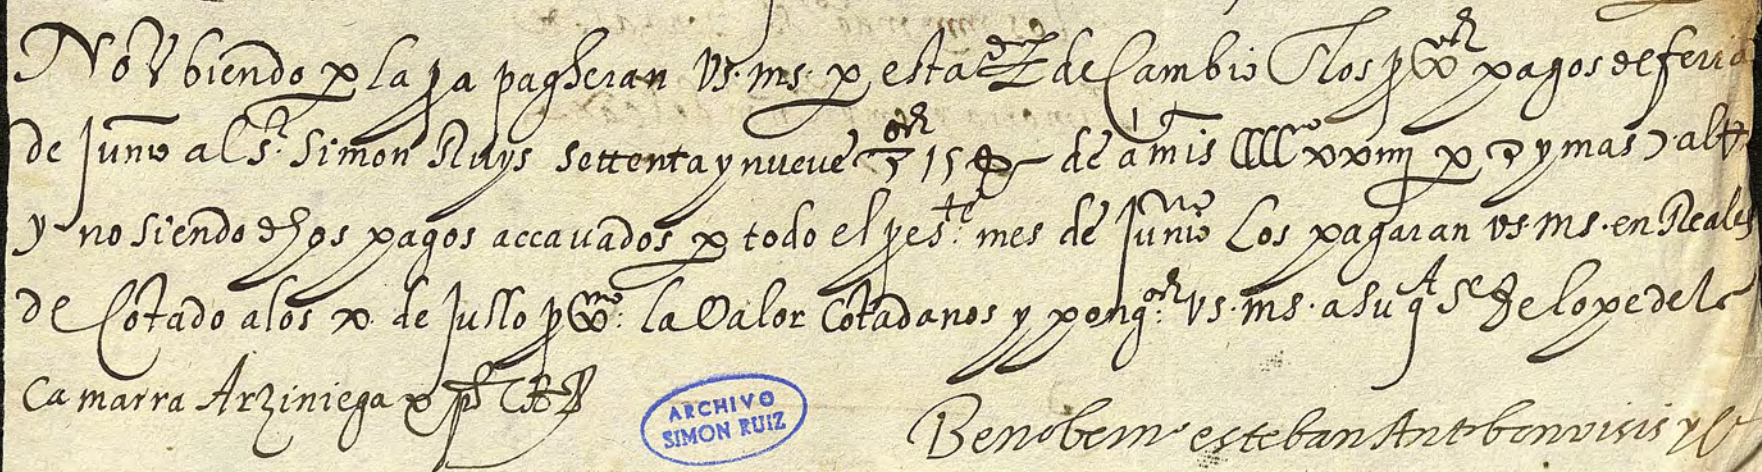 No Vbiendo p la pa pagheran vs. ms. p esta de Cambio los pagos de feria
de Junio al Sr. Simon Ruys settenta y nueve 15 de a mis CCCCxxiiij p y mas
y no siendo dhos pagos accauados p todo el pes.te mes de Junio Los pagaran vs. ms. en Reales
de Cotado a los x de Jullo pxmo. la Valor Cotadanos y pong. vs. ms. a su
Camarra Arziniega
ARCHIVO
SIMON RUIZ
esteban Ant bonvisis y